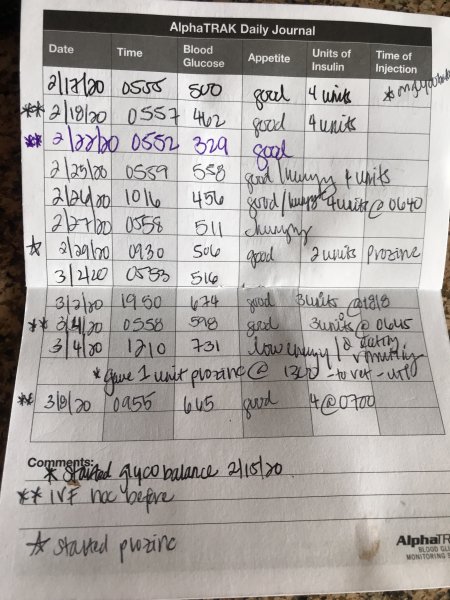 AlphaTRAK Daily Journal
Date Time Blood Glucose Appetite Units of Insulin Time of Injection
2/17/20 0555 500 good 4 units *
** 2/18/20 0557 462 good 4 units
** 2/22/20 0552 329 good
2/25/20 0559 558 good/hungry 4 units
2/26/20 1016 456 good/hungry 4 units @ 0640
2/27/20 0558 511 hungry
☆ 2/29/20 0930 506 good 2 units prozinc
3/2/20 0553 516
3/2/20 1950 674 good 3 units @ 1818
** 3/4/20 0558 598 good 3 units @ 0645
3/4/20 1210 731 low energy/ø eating vomiting
* gave 1 unit prozinc @ 1300 - to vet -
** 3/8/20 0955 665 good 4 @ 0700
Comments:
* started glycobalance 2/15/20
** IVF noc before
☆ started prozinc
AlphaTRA
BLOOD GL
MONITORING S